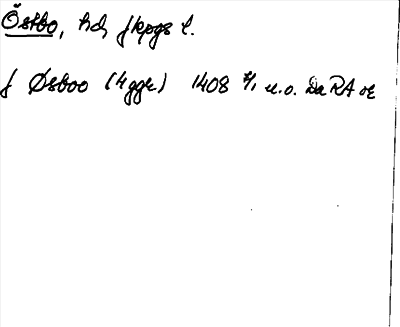 Östbo, hd, Jkpgs l.
f Øsboo (4 ggr) 1408 4/1 u.o. Da RA